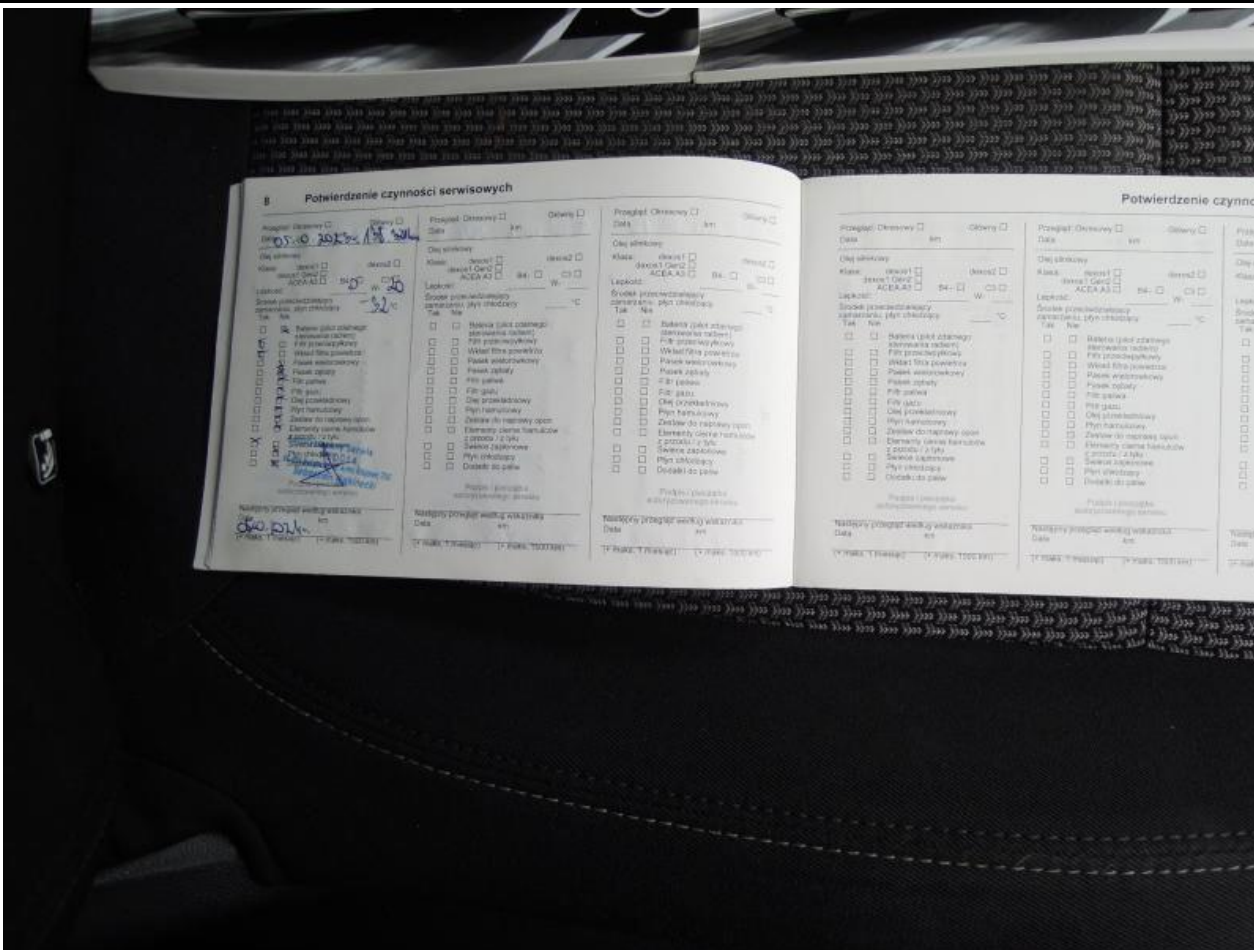 8 Potwierdzenie czynności serwisowych
Przegląd: Okresowy Główny
05.10.2023
Olej silnikowy:
Klasa: dexos1 dexos2
dexos1 Gen2
ACEA A3 B4- C3
Lepkość: W-
Środek przeciwdziałający
zamarzaniu, płyn chłodzący -32 °C
Tak Nie
Bateria (pilot zdalnego
sterowania radiem)
Filtr przeciwpyłkowy
Wkład filtra powietrza
Pasek wielorowkowy
Pasek zębaty
Filtr paliwa
Filtr gazu
Olej przekładniowy
Płyn hamulcowy
Zestaw do naprawy opon
Elementy cierne hamulców
z przodu / z tyłu
km
(+ maks. 1 miesiąc) (+ maks. 1000 km)
Przegląd: Okresowy Główny
Data km
Olej silnikowy:
Klasa: dexos1 dexos2
dexos1 Gen2
ACEA A3 B4- C3
Lepkość: W-
Środek przeciwdziałający
zamarzaniu, płyn chłodzący °C
Tak Nie
Bateria (pilot zdalnego
sterowania radiem)
Filtr przeciwpyłkowy
Wkład filtra powietrza
Pasek wielorowkowy
Pasek zębaty
Filtr paliwa
Filtr gazu
Olej przekładniowy
Płyn hamulcowy
Zestaw do naprawy opon
Elementy cierne hamulców
z przodu / z tyłu
Świece zapłonowe
Płyn chłodzący
Dodatki do paliw
Podpis i pieczątka
autoryzowanego serwisu
Następny przegląd według wskaźnika
Data km
(+ maks. 1 miesiąc) (+ maks. 1000 km)
Przegląd: Okresowy Główny
Data km
Olej silnikowy:
Klasa: dexos1 dexos2
dexos1 Gen2
ACEA A3 B4- C3
Lepkość: W-
Środek przeciwdziałający
zamarzaniu, płyn chłodzący °C
Tak Nie
Bateria (pilot zdalnego
sterowania radiem)
Filtr przeciwpyłkowy
Wkład filtra powietrza
Pasek wielorowkowy
Pasek zębaty
Filtr paliwa
Filtr gazu
Olej przekładniowy
Płyn hamulcowy
Zestaw do naprawy opon
Elementy cierne hamulców
z przodu / z tyłu
Świece zapłonowe
Płyn chłodzący
Dodatki do paliw
Podpis i pieczątka
autoryzowanego serwisu
Następny przegląd według wskaźnika
Data km
(+ maks. 1 miesiąc) (+ maks. 1000 km)
Potwierdzenie czynno
Przegląd: Okresowy Główny
Data km
Olej silnikowy:
Klasa: dexos1 dexos2
dexos1 Gen2
ACEA A3 B4- C3
Lepkość: W-
Środek przeciwdziałający
zamarzaniu, płyn chłodzący °C
Tak Nie
Bateria (pilot zdalnego
sterowania radiem)
Filtr przeciwpyłkowy
Wkład filtra powietrza
Pasek wielorowkowy
Pasek zębaty
Filtr paliwa
Filtr gazu
Olej przekładniowy
Płyn hamulcowy
Zestaw do naprawy opon
Elementy cierne hamulców
z przodu / z tyłu
Świece zapłonowe
Płyn chłodzący
Dodatki do paliw
Podpis i pieczątka
autoryzowanego serwisu
Następny przegląd według wskaźnika
Data km
(+ maks. 1 miesiąc) (+ maks. 1000 km)
Przegląd: Okresowy Główny
Data km
Olej silnikowy:
Klasa: dexos1 dexos2
dexos1 Gen2
ACEA A3 B4- C3
Lepkość: W-
Środek przeciwdziałający
zamarzaniu, płyn chłodzący °C
Tak Nie
Bateria (pilot zdalnego
sterowania radiem)
Filtr przeciwpyłkowy
Wkład filtra powietrza
Pasek wielorowkowy
Pasek zębaty
Filtr paliwa
Filtr gazu
Olej przekładniowy
Płyn hamulcowy
Zestaw do naprawy opon
Elementy cierne hamulców
z przodu / z tyłu
Świece zapłonowe
Płyn chłodzący
Dodatki do paliw
Podpis i pieczątka
autoryzowanego serwisu
Następny przegląd według wskaźnika
Data km
(+ maks. 1 miesiąc) (+ maks. 1000 km)